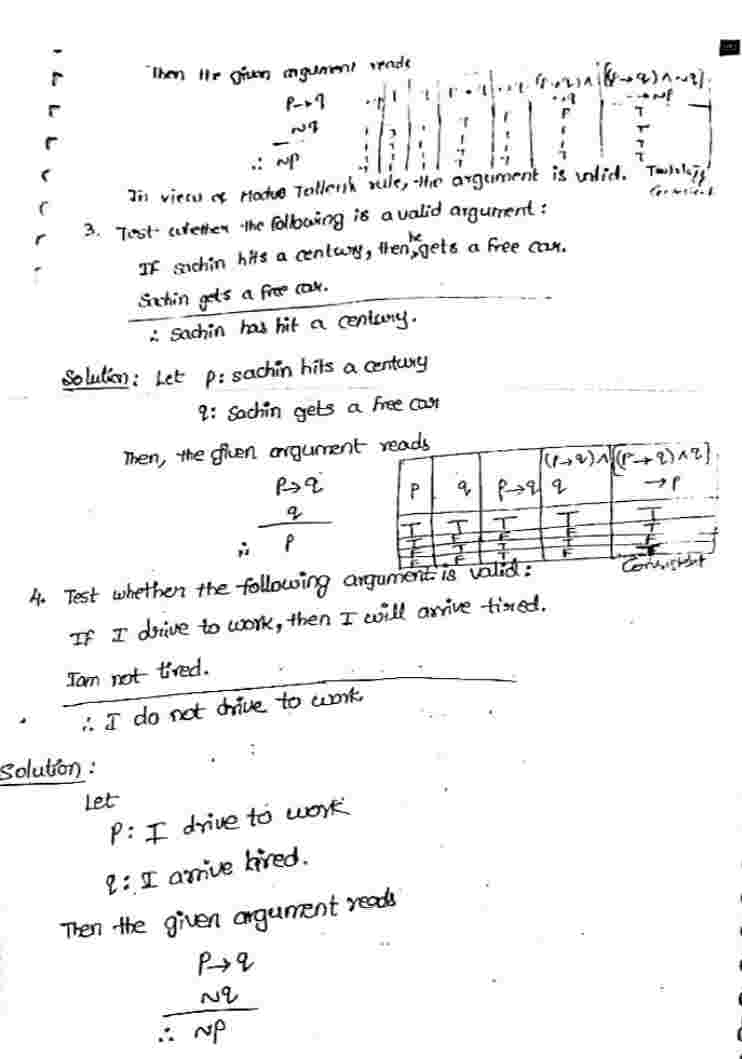 Then the given argument reads
p→q
~q
∴ ~p
In view of Modus Tollens rule, the argument is valid.
3. Test whether the following is a valid argument:
If sachin hits a century, then he gets a free car.
Sachin gets a free car.
∴ Sachin has hit a century.
Solution: Let p: sachin hits a century
q: Sachin gets a free car
Then, the given argument reads
p→q
q
∴ p
p q p→q (p→q)∧q {(p→q)∧q}→p
T T T T T
4. Test whether the following argument is valid:
If I drive to work, then I will arrive tired.
I am not tired.
∴ I do not drive to work
Solution:
Let
p: I drive to work
q: I arrive tired.
Then the given argument reads
p→q
~q
∴ ~p